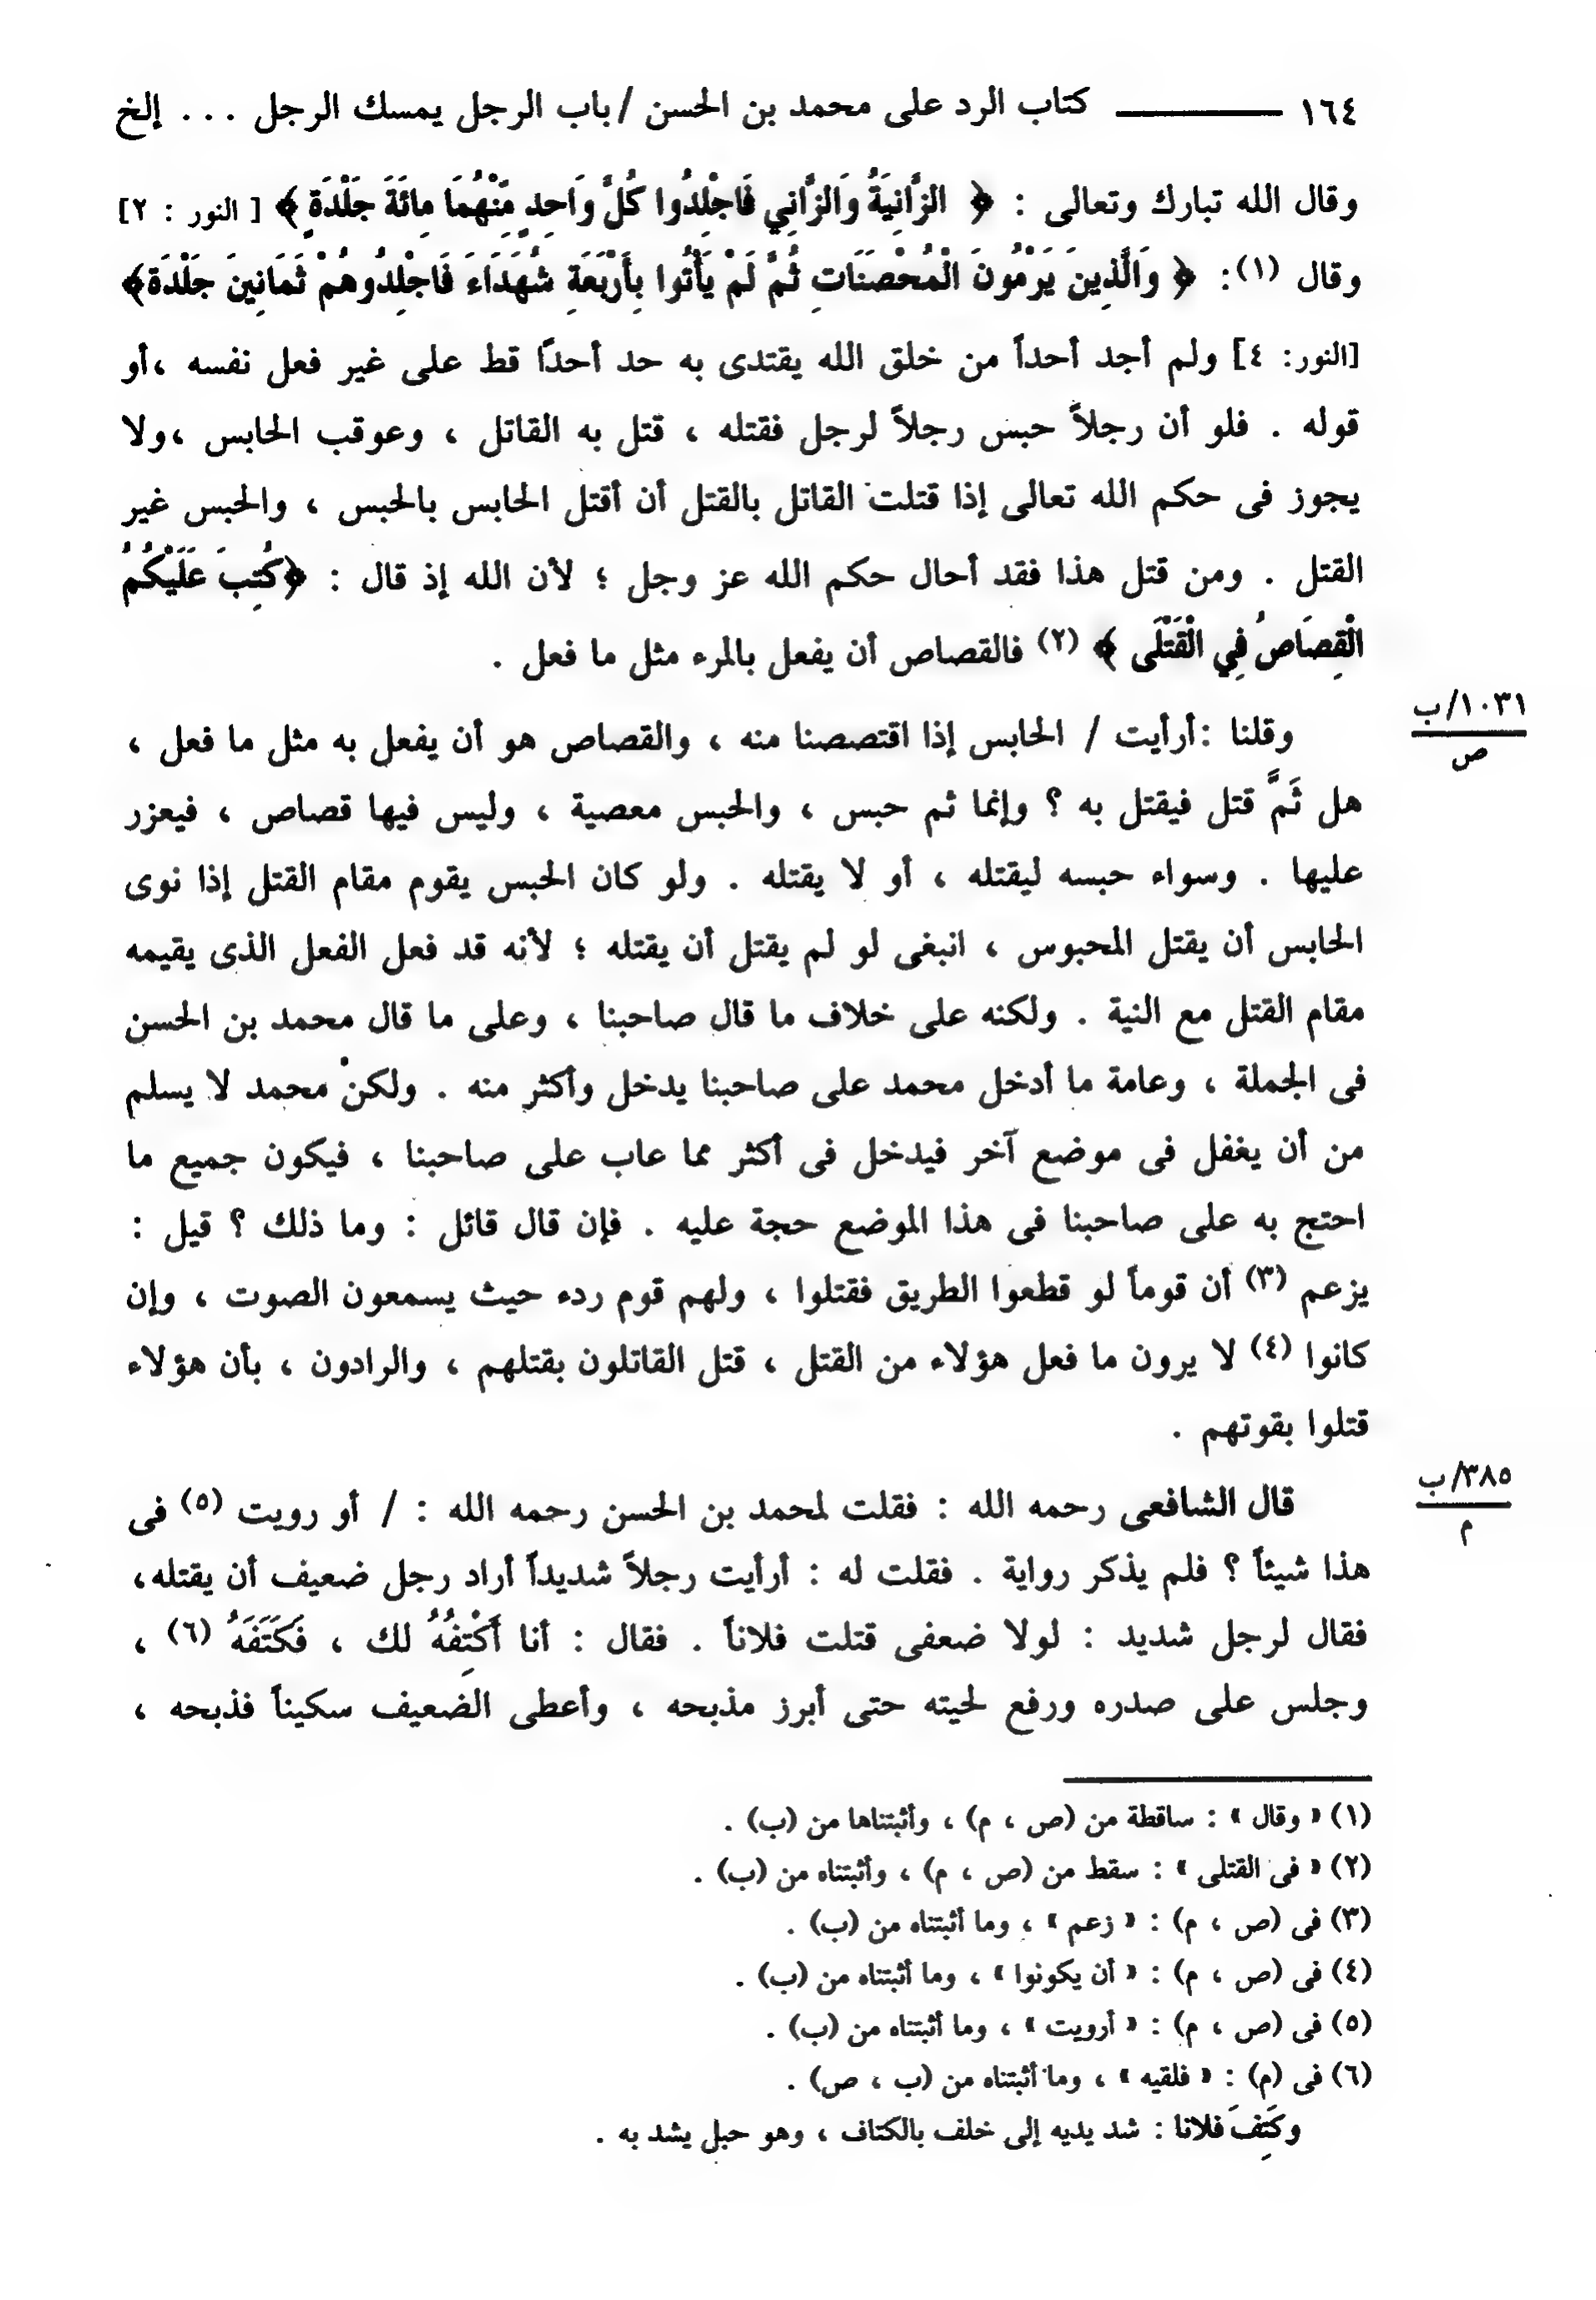 ١٦٤ ـــــــــ كتاب الرد على محمد بن الحسن / باب الرجل يمسك الرجل ... إلخ
وقال الله تبارك وتعالى : ﴿ الزَّانِيَةُ وَالزَّانِي فَاجْلِدُوا كُلَّ وَاحِدٍ مِّنْهُمَا مِائَةَ جَلْدَةٍ ﴾ [ النور : ٢]
وقال (١): ﴿ وَالَّذِينَ يَرْمُونَ الْمُحْصَنَاتِ ثُمَّ لَمْ يَأْتُوا بِأَرْبَعَةِ شُهَدَاءَ فَاجْلِدُوهُمْ ثَمَانِينَ جَلْدَة﴾
[النور: ٤] ولم أجد أحداً من خلق الله يقتدى به حد أحدًا قط على غير فعل نفسه ،أو
قوله . فلو أن رجلاً حبس رجلاً لرجل فقتله ، قتل به القاتل ، وعوقب الحابس ،ولا
يجوز فى حكم الله تعالى إذا قتلت القاتل بالقتل أن أقتل الحابس بالحبس ، والحبس غير
القتل . ومن قتل هذا فقد أحال حكم الله عز وجل ؛ لأن الله إذ قال : ﴿كُتِبَ عَلَيْكُمُ
الْقِصَاصُ فِي الْقَتْلَى ﴾ (٢) فالقصاص أن يفعل بالمرء مثل ما فعل .
١٠٣١/ب
ص
وقلنا :أرأيت / الحابس إذا اقتصصنا منه ، والقصاص هو أن يفعل به مثل ما فعل ،
هل ثَمَّ قتل فيقتل به ؟ وإنما ثم حبس ، والحبس معصية ، وليس فيها قصاص ، فيعزر
عليها . وسواء حبسه ليقتله ، أو لا يقتله . ولو كان الحبس يقوم مقام القتل إذا نوى
الحابس أن يقتل المحبوس ، انبغى لو لم يقتل أن يقتله ؛ لأنه قد فعل الفعل الذى يقيمه
مقام القتل مع النية . ولكنه على خلاف ما قال صاحبنا ، وعلى ما قال محمد بن الحسن
فى الجملة ، وعامة ما أدخل محمد على صاحبنا يدخل وأكثر منه . ولكنْ محمد لا يسلم
من أن يغفل فى موضع آخر فيدخل فى أكثر مما عاب على صاحبنا ، فيكون جميع ما
احتج به على صاحبنا فى هذا الموضع حجة عليه . فإن قال قائل : وما ذلك ؟ قيل :
يزعم (٣) أن قوماً لو قطعوا الطريق فقتلوا ، ولهم قوم ردء حيث يسمعون الصوت ، وإن
كانوا (٤) لا يرون ما فعل هؤلاء من القتل ، قتل القاتلون بقتلهم ، والرادون ، بأن هؤلاء
قتلوا بقوتهم .
٣٨٥/ب
م
قال الشافعى رحمه الله : فقلت لمحمد بن الحسن رحمه الله : / أو رويت (٥) فى
هذا شيئاً ؟ فلم يذكر رواية . فقلت له : أرأيت رجلاً شديداً أراد رجل ضعيف أن يقتله،
فقال لرجل شديد : لولا ضعفى قتلت فلاناً . فقال : أنا أَكْتِفُهُ لك ، فَكَتَفَهُ (٦) ،
وجلس على صدره ورفع لحيته حتى أبرز مذبحه ، وأعطى الضعيف سكيناً فذبحه ،
(١) « وقال » : ساقطة من (ص ، م) ، وأثبتناها من (ب) .
(٢) « فى القتلى » : سقط من (ص ، م) ، وأثبتناه من (ب) .
(٣) فى (ص ، م) : « زعم » ، وما أثبتناه من (ب) .
(٤) فى (ص ، م) : « أن يكونوا » ، وما أثبتناه من (ب) .
(٥) فى (ص ، م) : « أرويت » ، وما أثبتناه من (ب) .
(٦) فى (م) : « فلقيه » ، وما أثبتناه من (ب ، ص) .
وكَتِفَ فلانا : شد يديه إلى خلف بالكتاف ، وهو حبل يشد به .